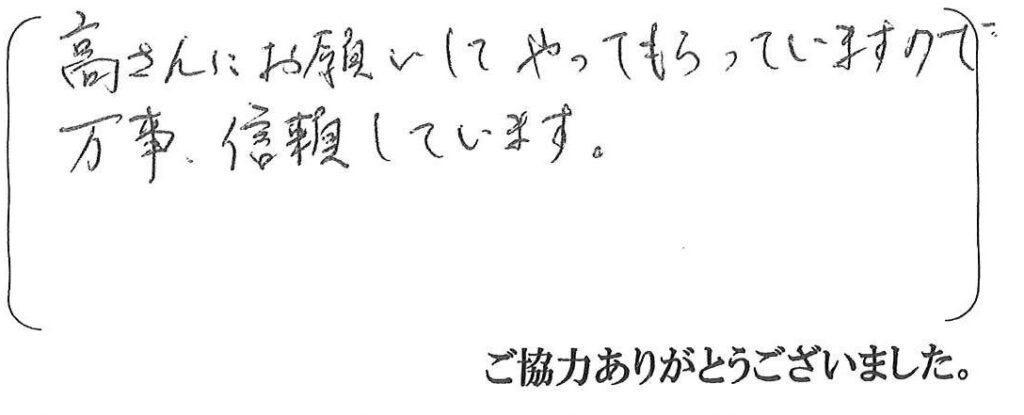 高さんにお願いしてやってもらっていますので
万事、信頼しています。
ご協力ありがとうございました。